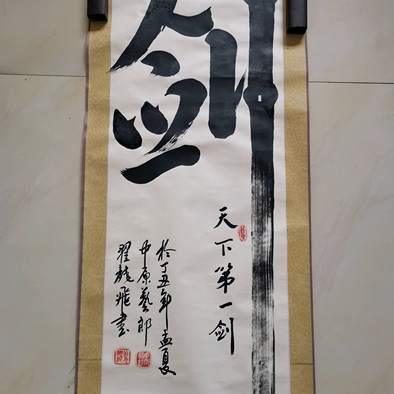 剑
天下第一剑
于丁丑年孟夏
中原艺郎
翟龙飞书